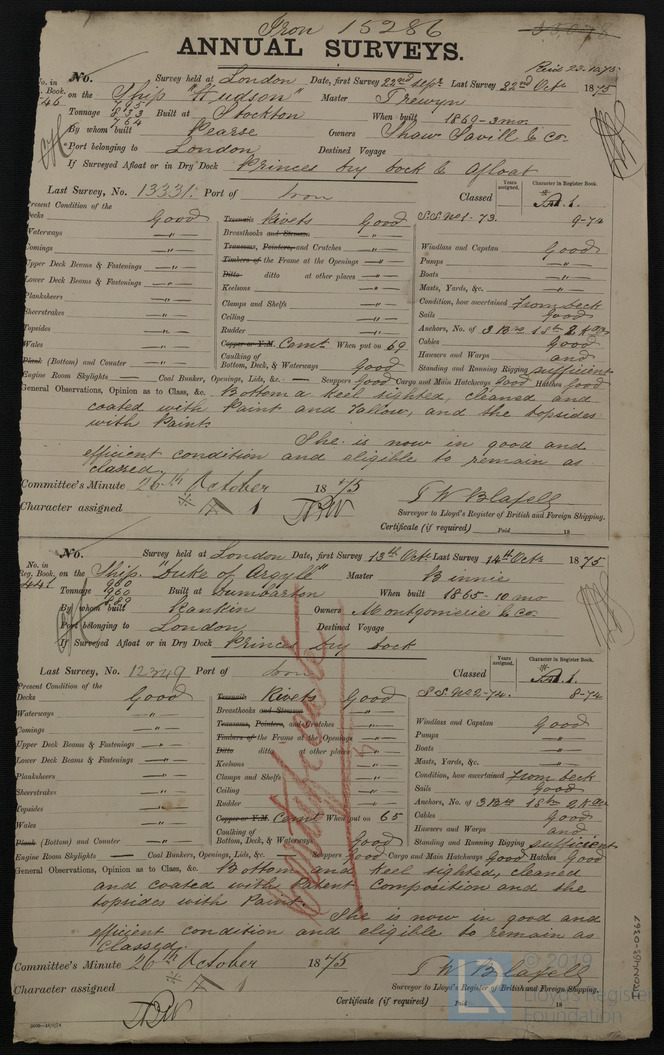 Iron 15286
ANNUAL SURVEYS.
Recd 23.10.75
No. in Reg. Book. No. Survey held at London Date, first Survey 22nd Septr Last Survey 22nd Octr 1875
546 on the Ship "Hudson" Master Trewyn
Tonnage 795 833 764 Built at Stockton When built 1869-3 mo.
By whom built Pearse Owners Shaw Savill & Co.
Port belonging to London Destined Voyage
If Surveyed Afloat or in Dry Dock Princes dry dock & afloat
Last Survey, No. 13331. Port of Iron Classed Years assigned. Character in Register Book.
A.1.
S.S. No 1-73. 9-74
Present Condition of the
Decks Good Treenails Rivets Good
Waterways " Breasthooks and Stemson " Windlass and Capstan Good
Comings " Transoms, Pointers, and Crutches " Pumps "
Upper Deck Beams & Fastenings " Timbers of the Frame at the Openings " Boats "
Lower Deck Beams & Fastenings " Ditto ditto at other places " Masts, Yards, &c. "
Planksheers " Keelsons " Condition, how ascertained From deck
Sheerstrakes " Clamps and Shelfs " Sails Good
Topsides " Ceiling " Anchors, No. of 3 Brs 1 St 2 Kdgs
Wales " Rudder " Cables Good
Plank (Bottom) and Counter " Copper or Y.M. Cemt. When put on 69 Hawsers and Warps and
Caulking of Bottom, Deck, & Waterways Good Standing and Running Rigging sufficient
Engine Room Skylights — Coal Bunkers, Openings, Lids, &c. — Scuppers Good Cargo and Main Hatchways Good Hatches Good
General Observations, Opinion as to Class, &c. Bottom & Keel sighted, cleaned and
coated with Paint and Tallow, and the topsides
with Paint.
She is now in good and
efficient condition and eligible to remain as
classed.
Committee's Minute 26th October 1875
Character assigned A 1
T W Blafell
Surveyor to Lloyd's Register of British and Foreign Shipping.
Certificate (if required) Paid 18
No. in Reg. Book. No. Survey held at London Date, first Survey 13th Oct. Last Survey 14th Octr 1875
441 on the Ship. "Duke of Argyle" Master Binnie
Tonnage 960 960 889 Built at Dumbarton When built 1865-10 mo
By whom built Rankin Owners Montgomerie & Co.
Port belonging to London Destined Voyage
If Surveyed Afloat or in Dry Dock Princes dry dock
Last Survey, No. 12349 Port of Iron Classed Years assigned. Character in Register Book.
A.1.
S.S. No 2-74. 8-74
Present Condition of the
Decks Good Treenails Rivets Good
Waterways " Breasthooks and Stemson " Windlass and Capstan Good
Comings " Transoms, Pointers, and Crutches " Pumps "
Upper Deck Beams & Fastenings " Timbers of the Frame at the Openings " Boats "
Lower Deck Beams & Fastenings " Ditto ditto at other places " Masts, Yards, &c. "
Planksheers " Keelsons " Condition, how ascertained From deck
Sheerstrakes " Clamps and Shelfs " Sails Good
Topsides " Ceiling " Anchors, No. of 3 Brs 1 St 2 Kdgs
Wales " Rudder " Cables Good
Plank (Bottom) and Counter " Copper or Y.M. Cemt When put on 65 Hawsers and Warps and
Caulking of Bottom, Deck, & Waterways Good Standing and Running Rigging sufficient
Engine Room Skylights — Coal Bunkers, Openings, Lids, &c. — Scuppers Good Cargo and Main Hatchways Good Hatches Good
General Observations, Opinion as to Class, &c. Bottom and Keel sighted, cleaned
and coated with Patent Composition and the
topsides with Paint.
She is now in good and
efficient condition and eligible to remain as
Classed.
Certificate
Committee's Minute 26th October 1875
Character assigned A 1
T W Blafell
Surveyor to Lloyd's Register of British and Foreign Shipping.
Certificate (if required) Paid 18
IRON463-0367
© 2019
LR Lloyd's Register
Foundation